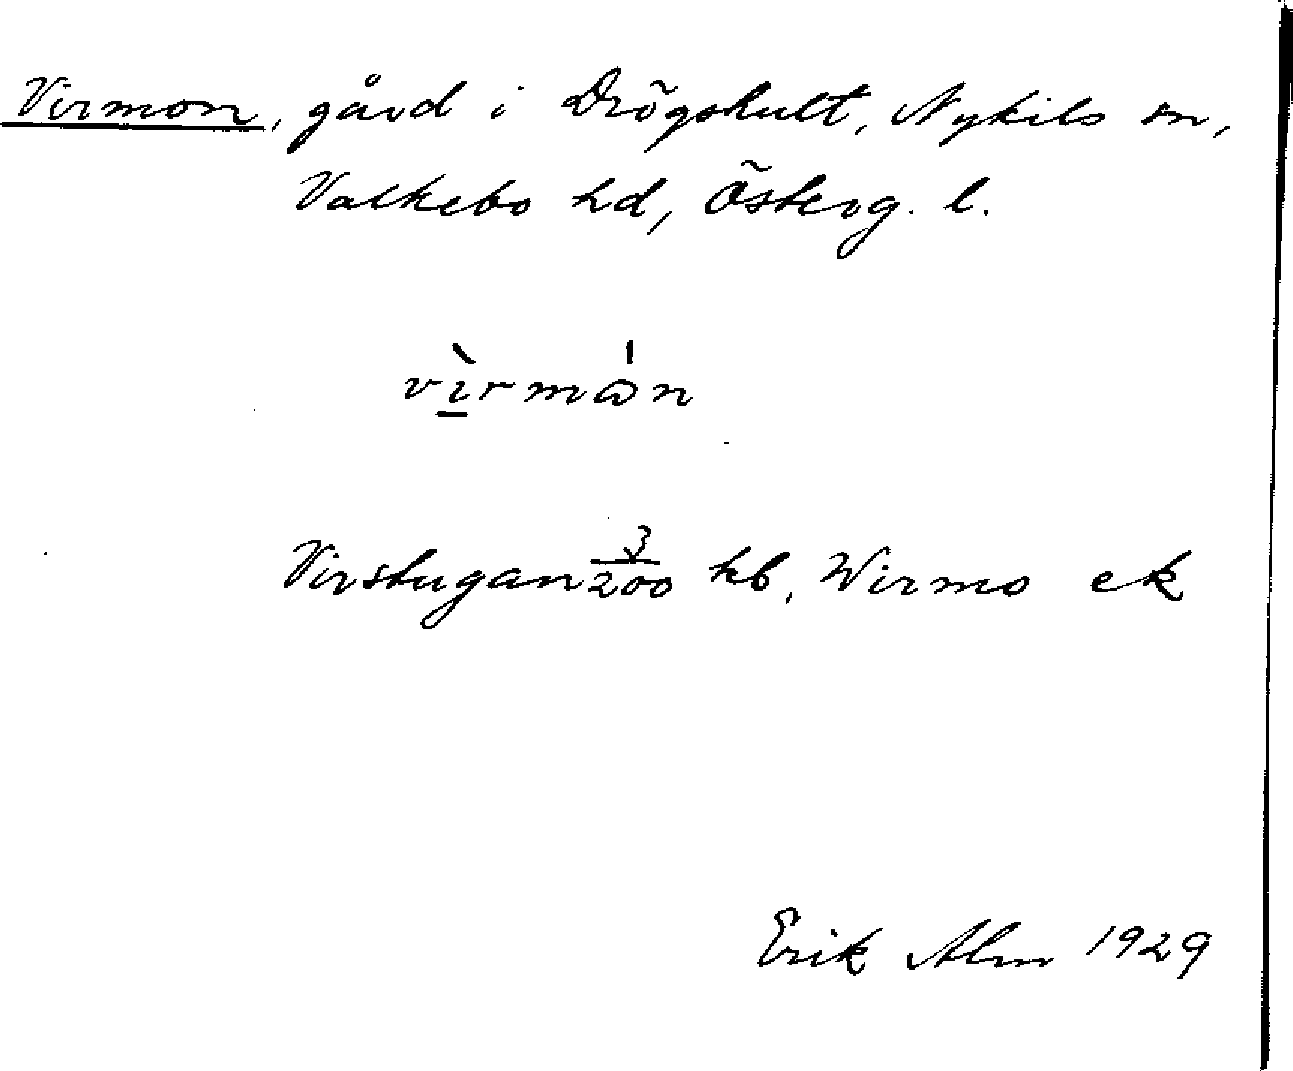 Virmon, gård i Drögshult, Nykils sn,
Valkebo hd, Österg. l.
vìrmån
Virstugan 3/200 hb, Wirmo ek
Erik Alm 1929